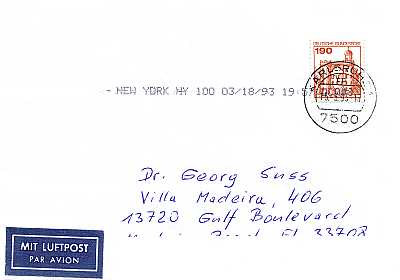 DEUTSCHE BUNDESPOST
190
KARLSRUHE
- NEW YORK NY 100 03/18/93 19:
7500
Dr. Georg Suss
Villa Madeira, 406
13720 Gulf Boulevard
Madeira Beach Fl 33708
MIT LUFTPOST
PAR AVION